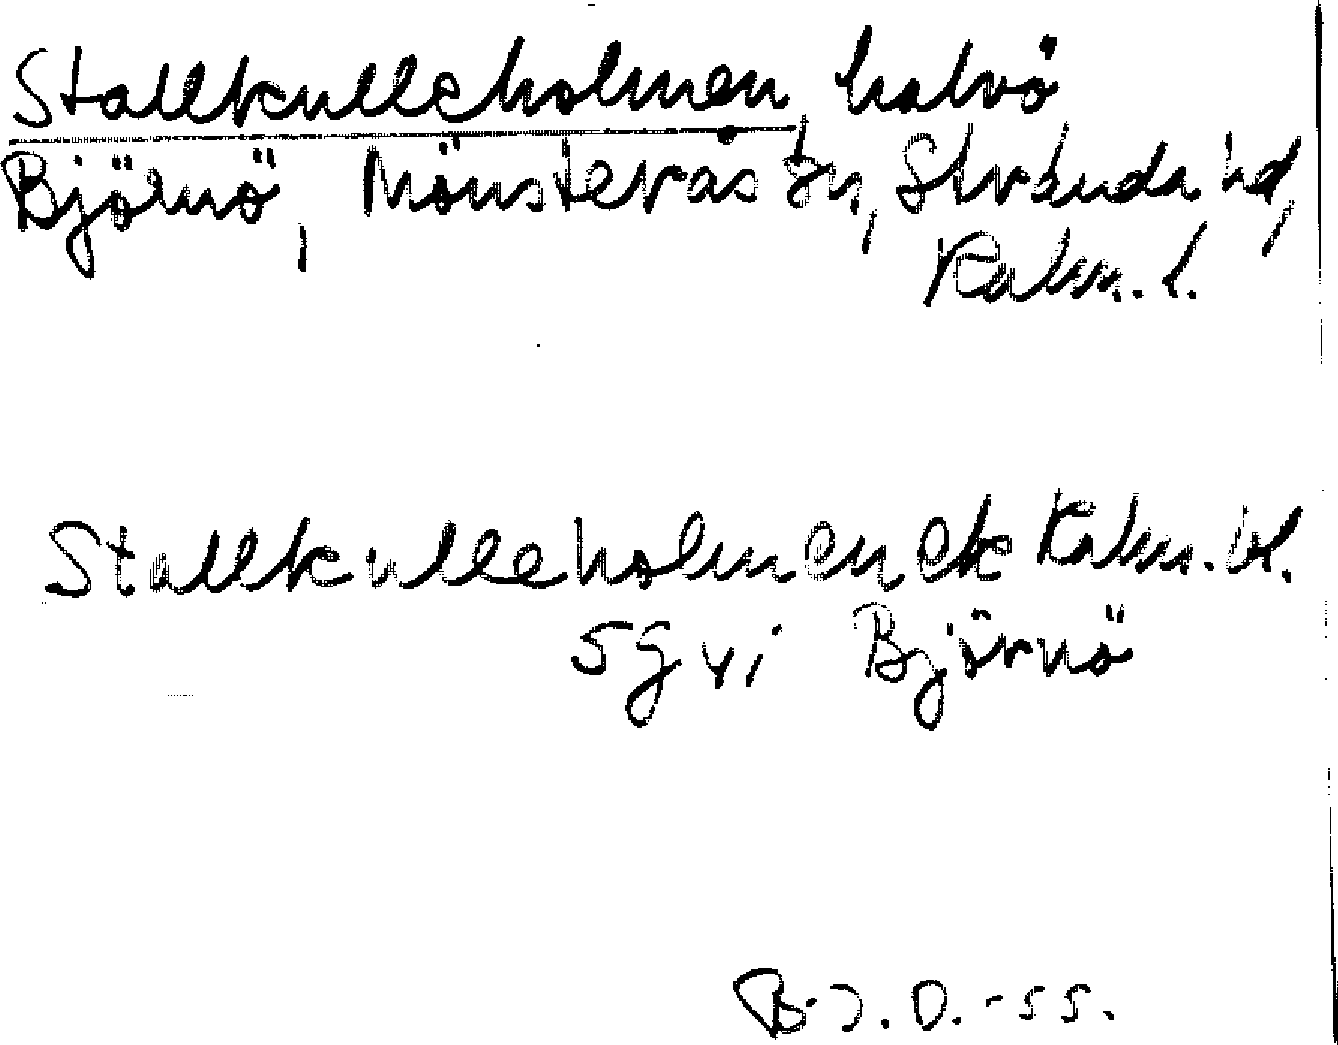 Stallkulleholmen halvö
Björnö, Mönsterås sn, Stranda hd,
Kalm. l.
Stallkulleholmen ek Kalm.
5 g vi Björnö
B.J.O. -55.